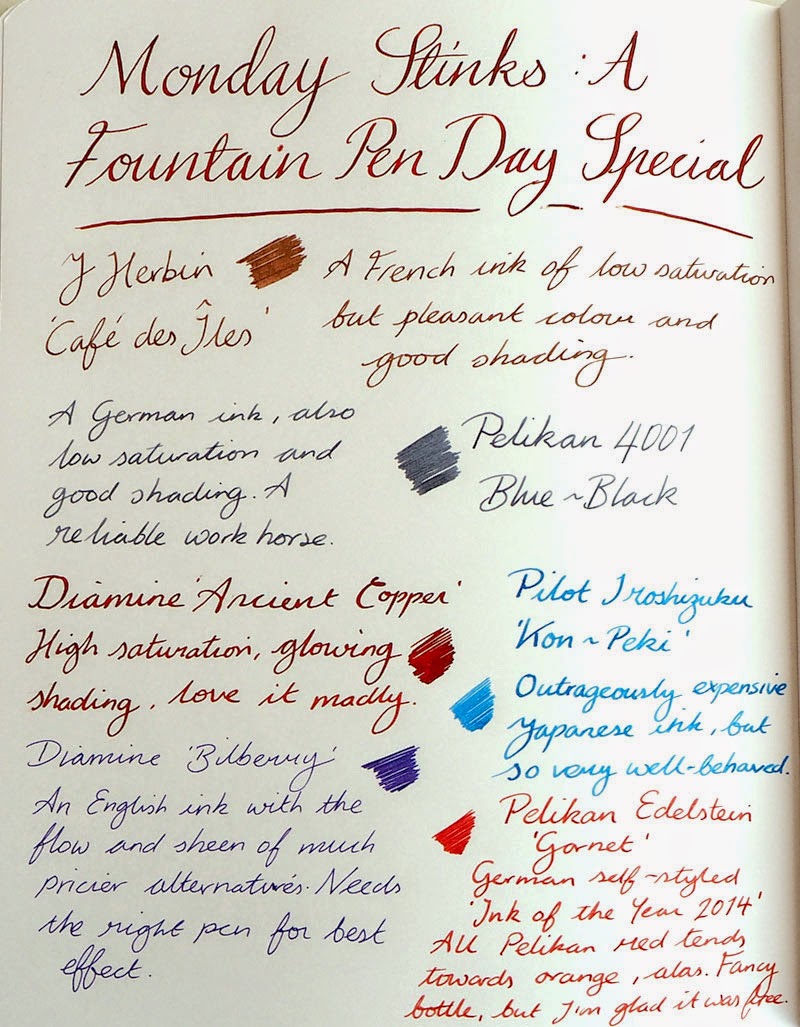 Monday Stinks : A
Fountain Pen Day Special
J Herbin
'Café des Îles'
A French ink of low saturation
but pleasant colour and
good shading.
A German ink, also
low saturation and
good shading. A
reliable work horse.
Pelikan 4001
Blue ~ Black
Diamine 'Ancient Copper'
High saturation, glowing
shading, love it madly.
Pilot Iroshizuku
'Kon ~ Peki'
Outrageously expensive
Japanese ink, but
so very well-behaved.
Diamine 'Bilberry'
An English ink with the
flow and sheen of much
pricier alternatives. Needs
the right pen for best
effect.
Pelikan Edelstein
'Garnet'
German self-styled
'Ink of the Year 2014'
All Pelikan red tends
towards orange, alas. Fancy
bottle, but I'm glad it was free.